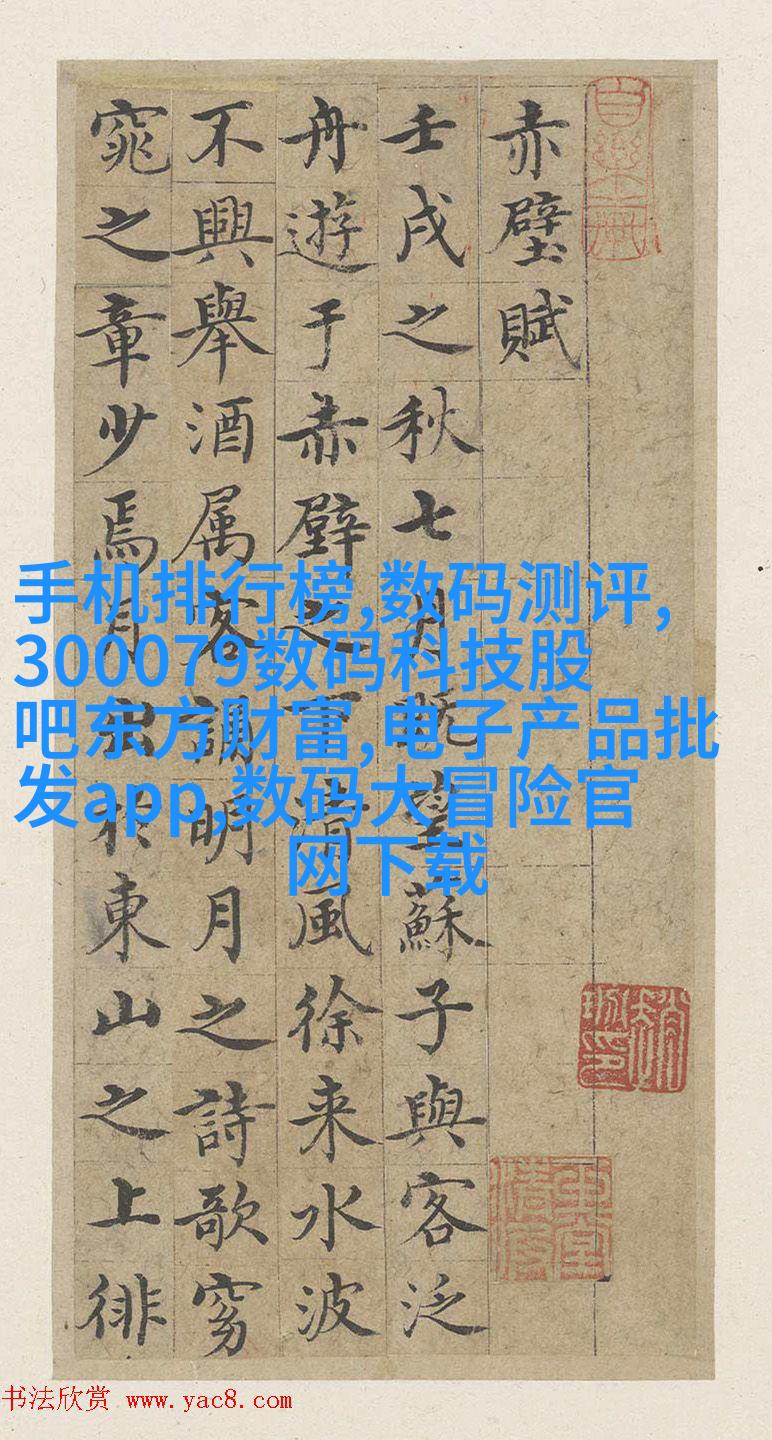 赤壁賦
壬戌之秋七月既望蘇子與客泛
舟遊于赤壁之下清風徐来水波
不興舉酒属客誦明月之詩歌窈
窕之章少焉月出於東山之上徘
手机排行榜,数码测评,
300079数码科技股
吧东方财富,电子产品批
发app,数码大冒险官
网下载
书法欣赏 www.yac8.com